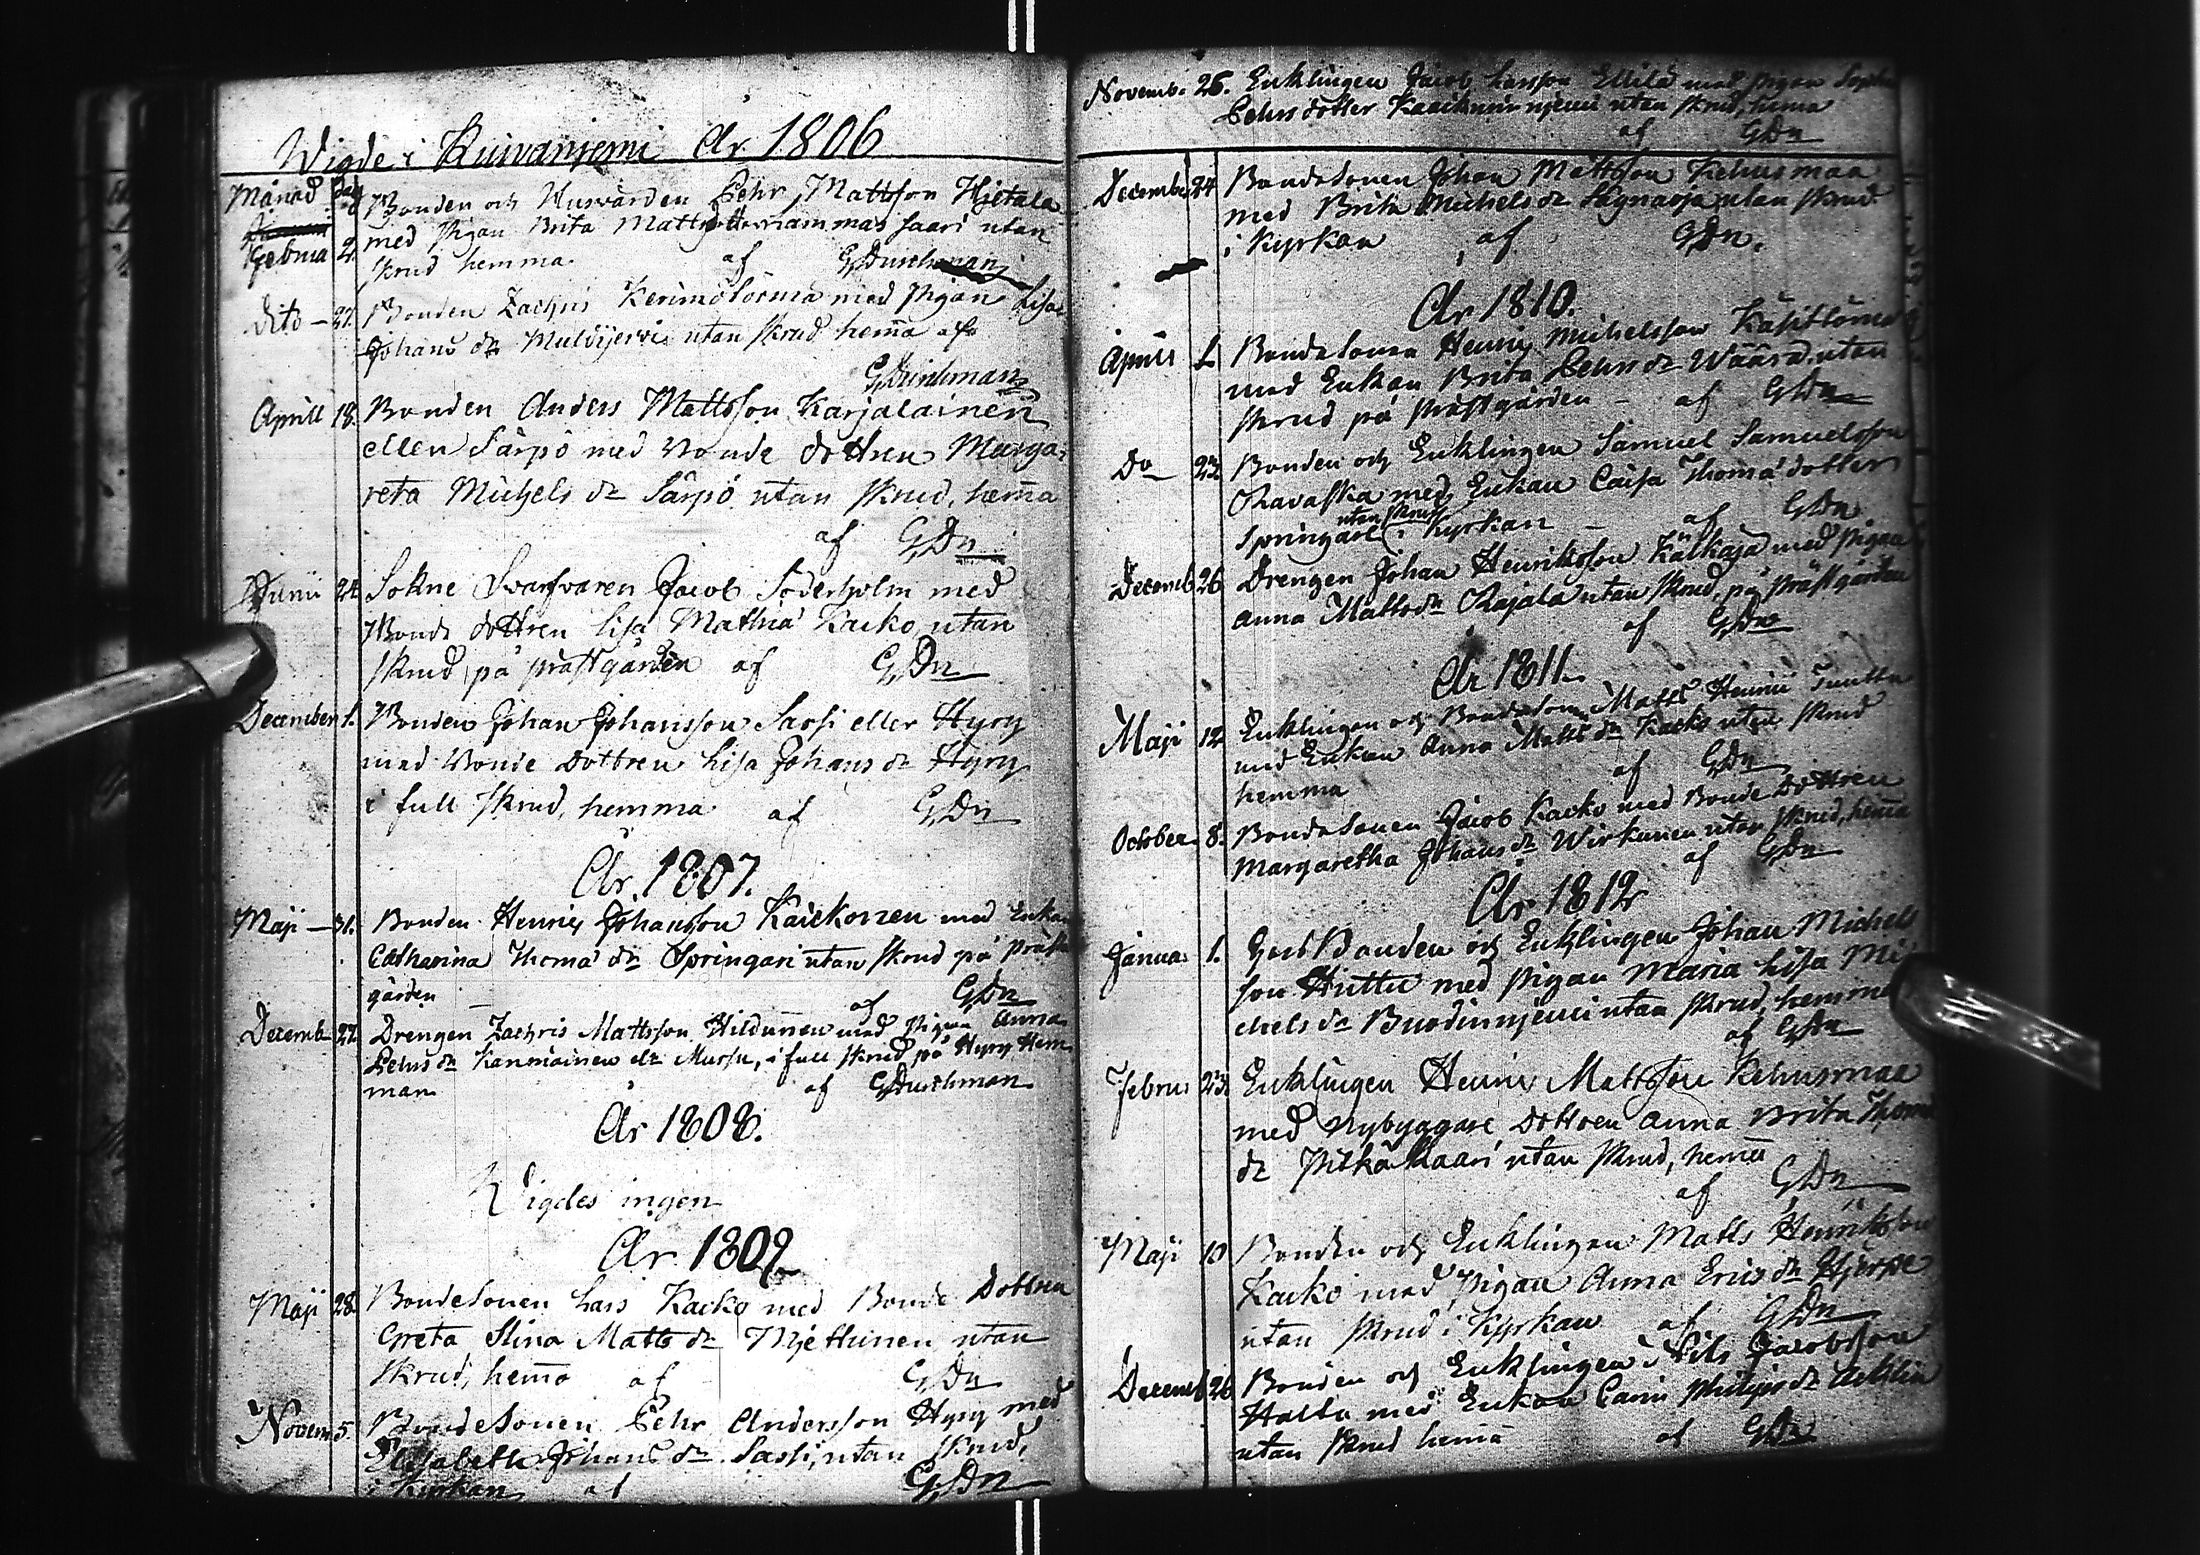 Wigde i Kuivaniemi År 1806
Månad Dag
Februa 2. Bonden och Husvärden Pehr Mattsson Hjetala
med Pigan Brita Matts dotter Hammassaari utan
skrud hemma af GDurchman
Dito – 27. Bonden Zachris Kerimö med Pigan Lisa
Johans dr utan skrud hemma af
GDurchman
Aprill 18. Bonden Anders Mattsson Karjalainen
eller Särpö med Bonde dottren Marga-
reta Michels dr Särpö utan skrud, hemma
af GDn
Junii 24. Sokne Svarfvaren Jacob Söderholm med
Bonde dottren Lisa Mathiæ Kacko utan
skrud på prästgården af GDn
December 1. Bonden Johan Johansson Sassi eller Hyry
med Bonde Dottren Lisa Johans dr Hyry
i full skrud, hemma af GDn
År 1807.
Maji – 31. Bonden Henric Johansson Kaickonen med Enkan
Catharina Thomæ dr Springari utan skrud på Präst
gården – af GDn
Decemb 27. Drengen Zachris Mattsson Hildunen med Pigan Anna
Pehrs dr Kanniainen eller Mursu, i full skrud på Hyry Hem
man af GDurchman
År 1808.
Wigdes ingen
År 1809
Maji 28. Bondesonen Lars Kacko med Bonde Dottren
Greta Stina Matts dr Mjettunen utan
skrud, hemma af GDn
Novem 5. Bondesonen Pehr Andersson Hyry med
Elisabeth Johans dr Sassi, utan skrud,
i Kyrkan af GDn
Novemb. 26. Enklingen Jacob Larsson Ellilä med Pigan Sophia
Pehrsdotter utan skrud, hemma
af GDn
Decemb 24 Bondesonen Johan Mattsson Kehusmaa
med Brita Michels dr utan skrud
i Kyrkan af GDn.
År 1810.
Aprill 1. Bondesonen Henric Michelsson
med Enkan Brita Pehrs dr Wäärä utan
skrud på prästgården – af GDn
Do – 23. Bonden och Enklingen Samuel Samuelsson
Ravaska med Enkan Caisa Thomæ dotter
Springare utan skrud i Kyrkan – af GDn
Decemb 26 Drengen Johan Henriksson Kälkäjä med Pigan
Anna Matts dr Rajala utan skrud, på prästgården
af GDn
År 1811.
Maji 12 Enklingen och Bondeson Matts Henric
med Enkan Anna Matts dr Kacko utan skrud
hemma af GDn
October 8. Bondesonen Jacob Kacko med Bonde Dottren
Margaretha Johans dr Wirkunen utan skrud, hemma
af GDn
År 1812
Janua 1. Bonden och Enklingen Johan Michels
son Huttu med Pigan Maria Lisa Mi-
chels dr utan skrud, hemma
af GDn
Febru 23. Enklingen Henric Mattsson Kehusmaa
med nybyggare Dottren Anna Brita Thomæ
dr Pitkäsaari utan skrud, hemma
af GDn
Maji 10 Bonden och Enklingen Matts Henriksson
Kacko med Pigan Anna Erics dr Hjerpe
utan skrud i Kyrkan af GDn
Decemb 26 Bonden och Enklingen Nils Jacobsson
med Enkan Carin Philips dr
utan skrud hemma af GDn